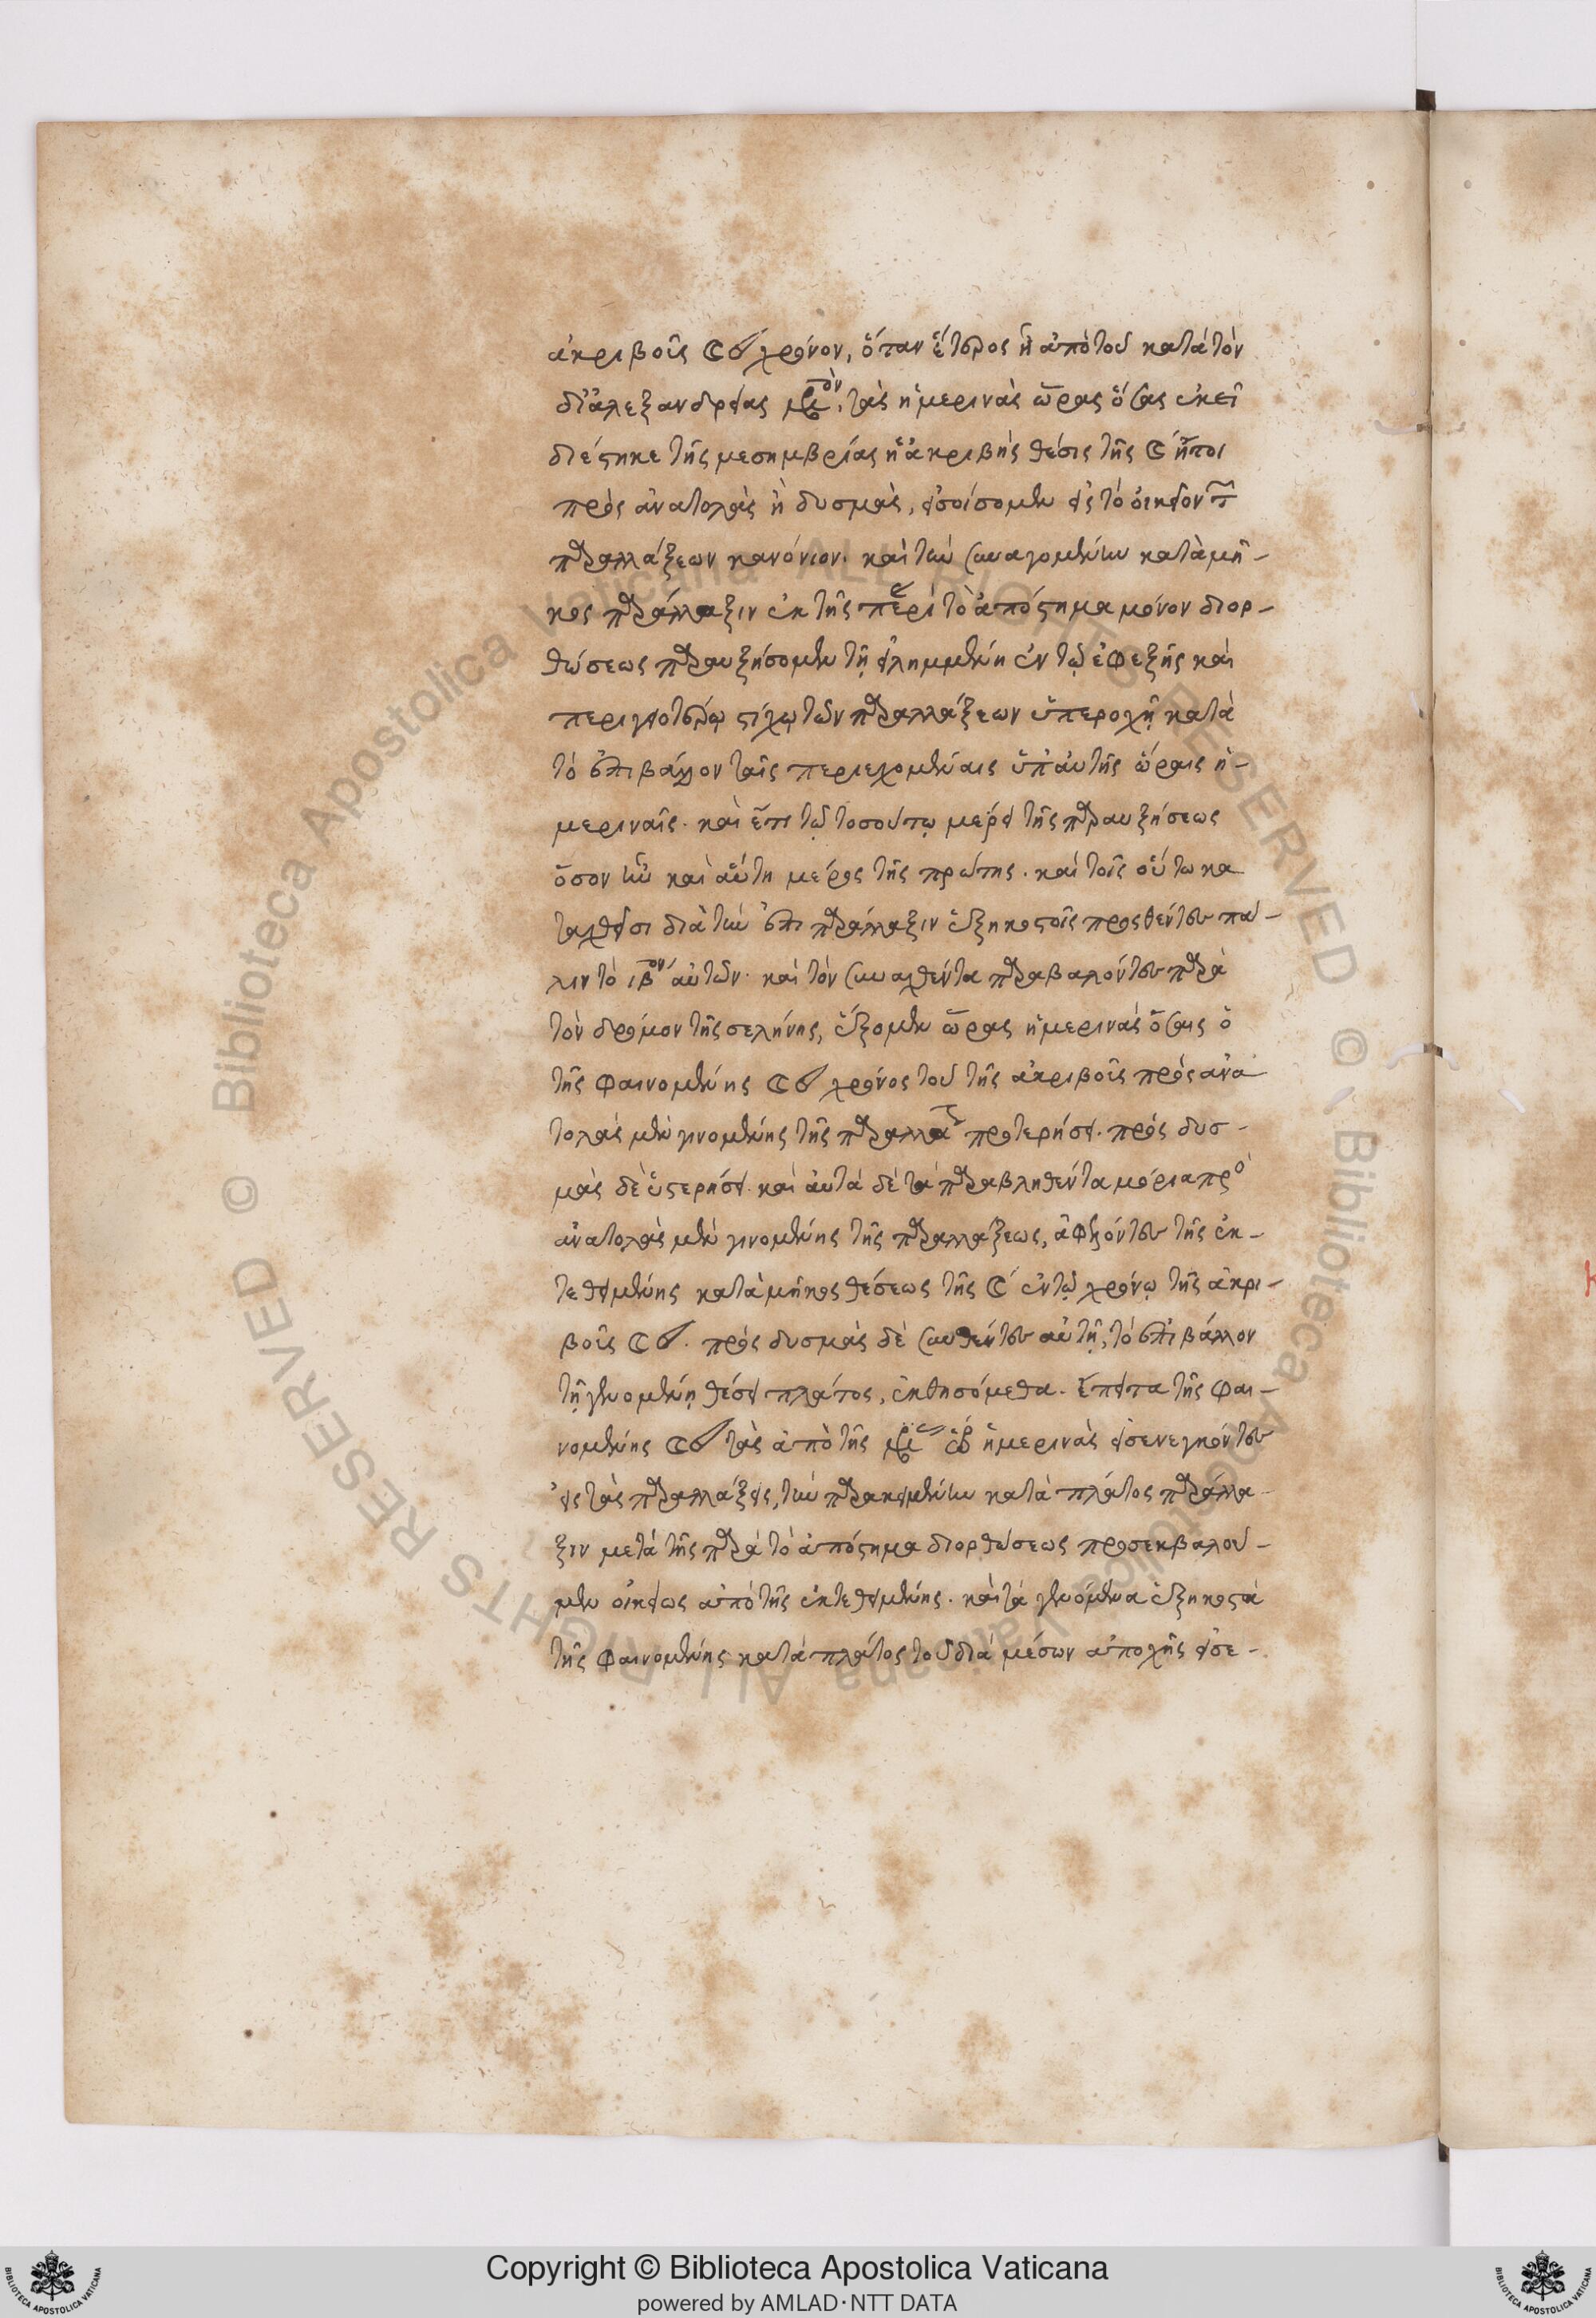 ἀκριβοῦς ☾☌ χρόνον, ὅταν ἕτερος ᾖ ἀπὸ τοῦ κατὰ τὸν
δι' ἀλεξανδρείας τὰς ἡμερινὰς ὥρας ὅσας ἐκεῖ
διέστηκε τῆς μεσημβρίας ἡ ἀκριβὴς θέσις τῆς ☾ ἤτοι
πρὸς ἀνατολὰς ἢ δυσμὰς, εἰσοίσομεν εἰς τὸ οἰκεῖον τ
παραλλάξεων κανόνιον. καὶ τὴν συναγομένην κατὰ μῆ-
κος παράλλαξιν ἐκ τῆς περὶ τὸ ἀπόστημα μόνον διορ-
θώσεως παραυξήσομεν τῇ εἰλημμένῃ ἐν τῷ ἐφεξῆς καὶ
περιγειοτέρῳ στίχῳ τῶν παραλλάξεων ὑπεροχῇ κατὰ
τὸ ἐπιβάλλον ταῖς περιεχομέναις ὑπ' αὐτῆς ὥραις ἡ-
μεριναῖς. καὶ ἔτι τῷ τοσούτῳ μέρει τῆς παραυξήσεως
ὅσον ἦν καὶ αὕτη μέρος τῆς πρώτης. καὶ τοῖς οὕτω κα
ταχθεῖσι διὰ τὴν ἐπιπαράλλαξιν ἑξηκοστοῖς προσθέντες πά-
λιν τὸ ιβον αὐτῶν. καὶ τὸν συναχθέντα παραβαλόντες παρὰ
τὸν δρόμον τῆς σελήνης, ἕξομεν ὥρας ἡμερινὰς ὅσαις ὁ
τῆς φαινομένης ☾☌ χρόνος τοῦ τῆς ἀκριβοῦς πρὸς ἀνα
τολὰς μὲν γινομένης τῆς παραλλα προτερήσει. πρὸς δυσ-
μὰς δὲ ὑστερήσει. καὶ αὐτὰ δὲ τὰ παραβληθέντα μόρια πρὸ
ἀνατολὰς μὲν γινομένης τῆς παραλλάξεως, ἀφελόντες τῆς ἐκ-
τεθειμένης κατὰ μῆκος θέσεως τῆς ☾ ἐν τῷ χρόνῳ τῆς ἀκρι-
βοῦς ☾☌. πρὸς δυσμὰς δὲ συνθέντες αὐτῇ, τὸ ἐπιβάλλον
τῇ γενομένῃ θέσει πλάτος, ἐκθησόμεθα. ἔπειτα τῆς φαι-
νομένης ☾☌ τὰς ἀπὸ τῆς ἡμερινὰς εἰσενεγκόντες
εἰς τὰς παραλλάξεις, τὴν παρακειμένην κατὰ πλάτος παράλλα
ξιν μετὰ τῆς παρὰ τὸ ἀπόστημα διορθώσεως προσεκβαλοῦ-
μεν οἰκείως ἀπὸ τῆς ἐκτεθειμένης. καὶ τὰ γενόμενα ἑξηκοστὰ
τῆς φαινομένης κατὰ πλάτος τοῦ διὰ μέσων ἀποχῆς εἰσε-
© Biblioteca Apostolica Vaticana ALL RIGHTS RESERVED © Biblioteca Apostolica Vaticana ALL RIGHTS RESERVED
Copyright © Biblioteca Apostolica Vaticana
powered by AMLAD·NTT DATA
BIBLIOTECA APOSTOLICA VATICANA
BIBLIOTECA APOSTOLICA VATICANA